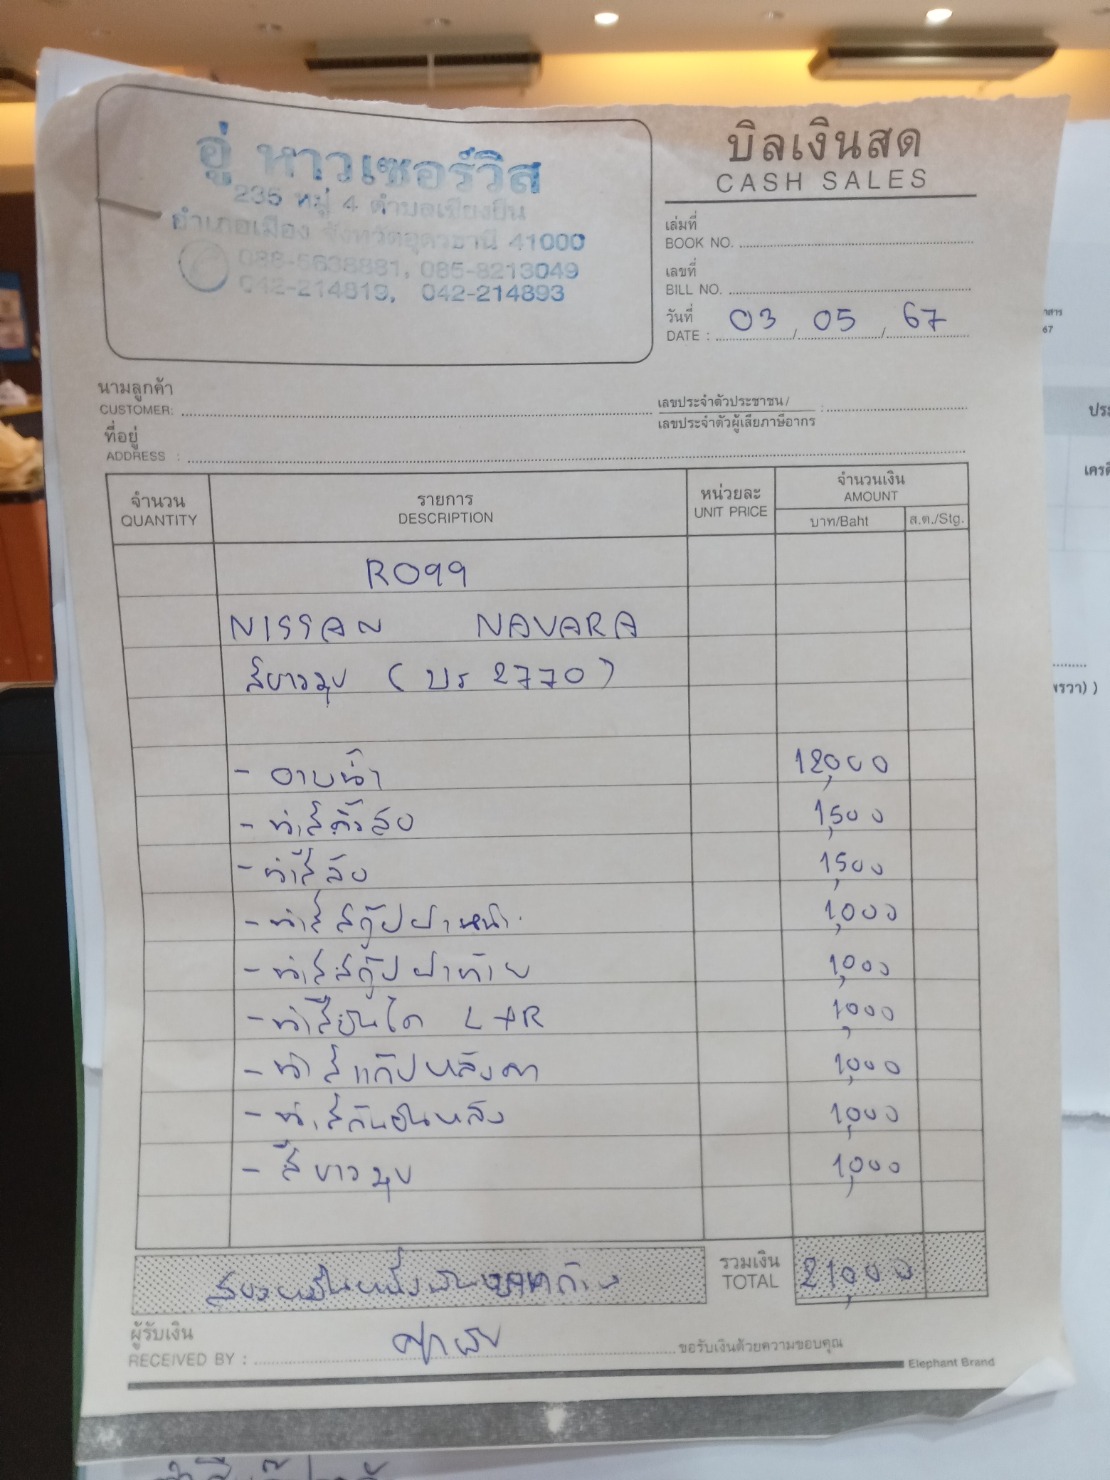 อู่ หาวเซอร์วิส
235 หมู่ 4 ตำบลเชียงยืน
อำเภอเมือง จังหวัดอุดรธานี 41000
088-5638881, 085-8213049
042-214819, 042-214893
บิลเงินสด
CASH SALES
เล่มที่
BOOK NO.
เลขที่
BILL NO.
วันที่
DATE : 03 / 05 / 67
นามลูกค้า
CUSTOMER:
เลขประจำตัวประชาชน /
เลขประจำตัวผู้เสียภาษีอากร :
ที่อยู่
ADDRESS :
จำนวน
QUANTITY
รายการ
DESCRIPTION
หน่วยละ
UNIT PRICE
จำนวนเงิน
AMOUNT
บาท/Baht
ส.ต./Stg.
R099
NISSAN NAVARA
สีขาวมุข (บร 2770)
- อาบน้ำ 12,000
- ทำสี 1,500
- ทำสี 1,500
- ทำสีสกู๊ปฝาหน้า 1,000
- ทำสีสกู๊ปฝาท้าย 1,000
- ทำสีบันได L+R 1,000
- ทำสีแก้ปหลังคา 1,000
- ทำสีกันชนหลัง 1,000
- สีขาวมุข 1,000
สองหมื่นหนึ่งพันบาทถ้วน
รวมเงิน
TOTAL 21,000
ผู้รับเงิน
RECEIVED BY :
ขอรับเงินด้วยความขอบคุณ
Elephant Brand
67